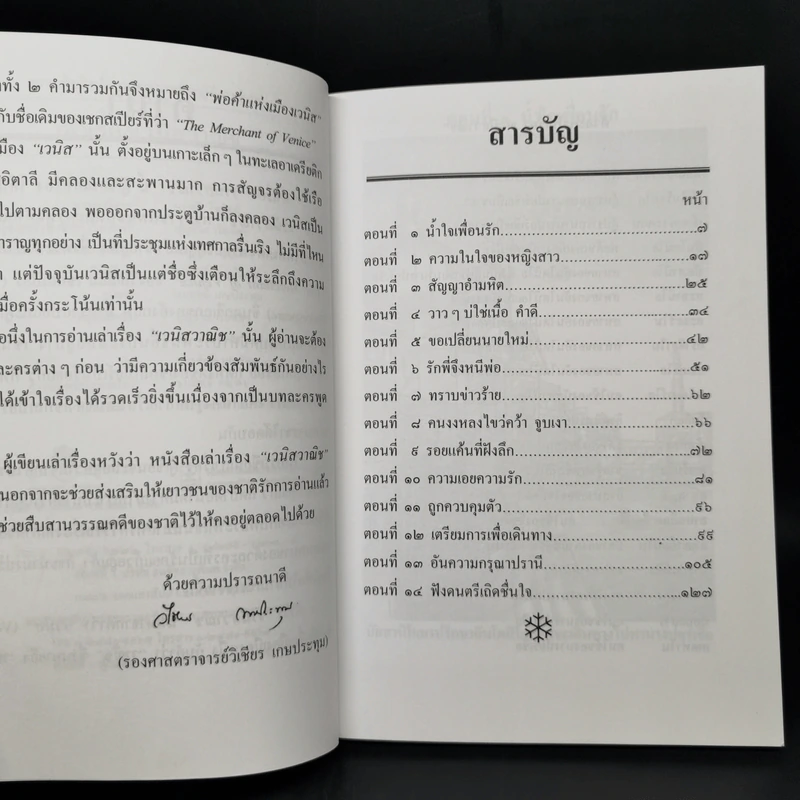 ทั้ง ๒ คำมารวมกันจึงหมายถึง “พ่อค้าแห่งเมืองเวนิส”
กับชื่อเดิมของเชกสเปียร์ที่ว่า “The Merchant of Venice”
เมือง “เวนิส” นั้น ตั้งอยู่บนเกาะเล็ก ๆ ในทะเลอาเดรียติก
อิตาลี มีคลองและสะพานมาก การสัญจรต้องใช้เรือ
ไปตามคลอง พอออกจากประตูบ้านก็ลงคลอง เวนิสเป็น
ราญทุกอย่าง เป็นที่ประชุมแห่งเทศกาลรื่นเริง ไม่มีที่ไหน
แต่ปัจจุบันเวนิสเป็นแต่ชื่อซึ่งเตือนให้ระลึกถึงความ
มื่อครั้งกระโน้นเท่านั้น
อนึ่งในการอ่านเล่าเรื่อง “เวนิสวาณิช” นั้น ผู้อ่านจะต้อง
ละครต่าง ๆ ก่อน ว่ามีความเกี่ยวข้องสัมพันธ์กันอย่างไร
ได้เข้าใจเรื่องได้รวดเร็วยิ่งขึ้นเนื่องจากเป็นบทละครพูด
ผู้เขียนเล่าเรื่องหวังว่า หนังสือเล่าเรื่อง “เวนิสวาณิช”
นอกจากจะช่วยส่งเสริมให้เยาวชนของชาติรักการอ่านแล้ว
ช่วยสืบสานวรรณคดีของชาติไว้ให้คงอยู่ตลอดไปด้วย
ด้วยความปรารถนาดี
(รองศาสตราจารย์วิเชียร เกษประทุม)
สารบัญ
หน้า
ตอนที่ ๑ น้ำใจเพื่อนรัก...๗
ตอนที่ ๒ ความในใจของหญิงสาว...๑๗
ตอนที่ ๓ สัญญาอำมหิต...๒๕
ตอนที่ ๔ วาว ๆ บ่ใช่เนื้อ คำดี...๓๔
ตอนที่ ๕ ขอเปลี่ยนนายใหม่...๔๒
ตอนที่ ๖ รักพี่จึงหนีพ่อ...๕๑
ตอนที่ ๗ ทราบข่าวร้าย...๖๒
ตอนที่ ๘ คนงงหลงไขว่คว้า จูบเงา...๖๖
ตอนที่ ๙ รอยแค้นที่ฝังลึก...๗๒
ตอนที่ ๑๐ ความเอยความรัก...๘๑
ตอนที่ ๑๑ ถูกควบคุมตัว...๙๖
ตอนที่ ๑๒ เตรียมการเพื่อเดินทาง...๙๙
ตอนที่ ๑๓ อันความกรุณาปรานี...๑๐๕
ตอนที่ ๑๔ ฟังดนตรีเถิดชื่นใจ...๑๒๗